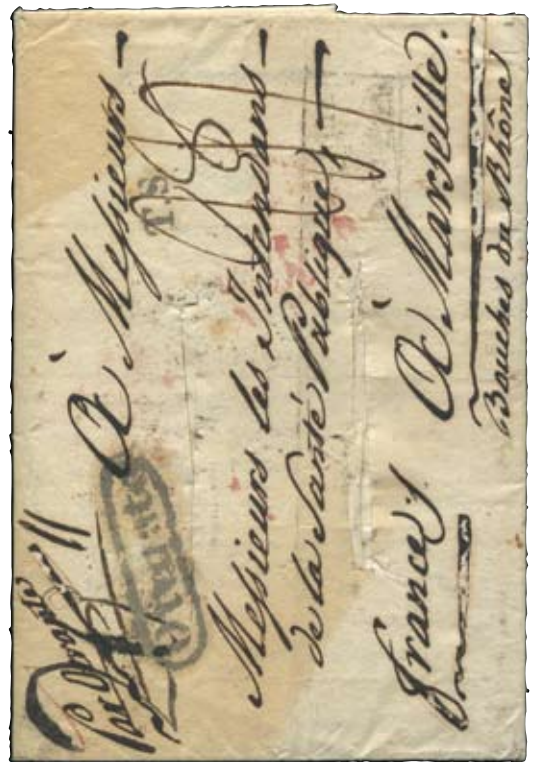 À Messieurs —
Messieurs les Intendans —
de la Santé Publique —
France À Marseille.
Bouches du Rhône